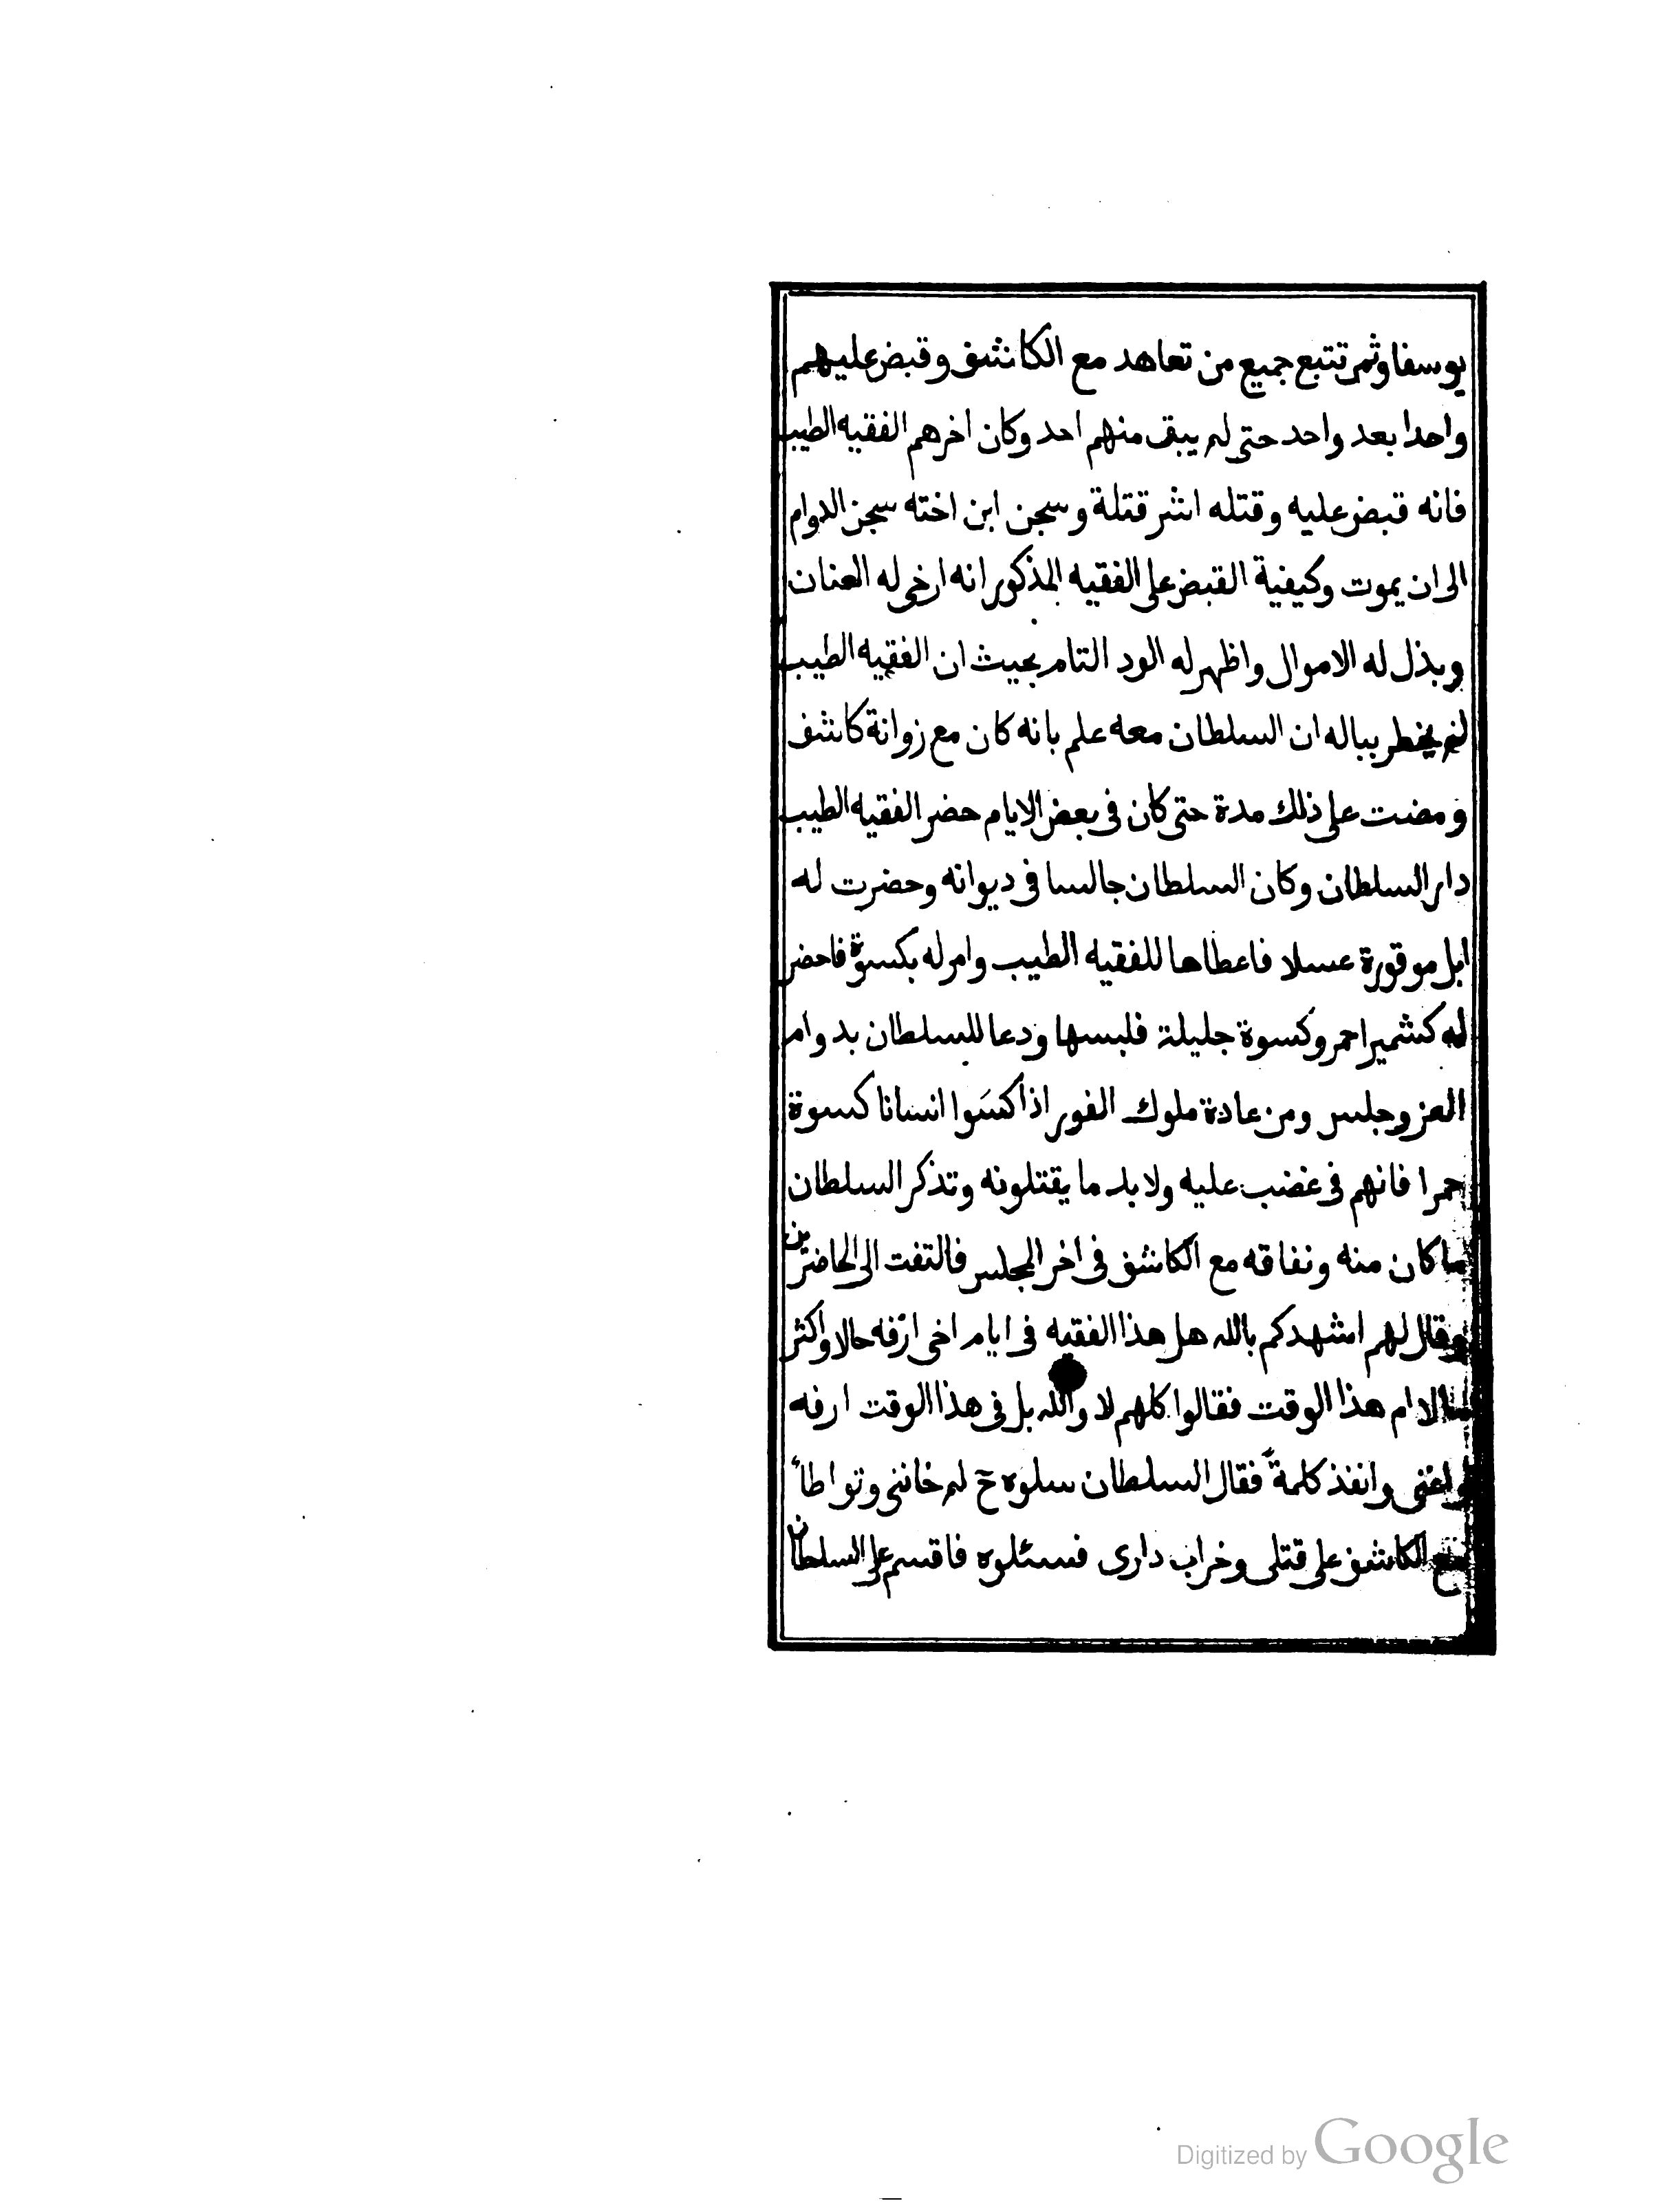 يوسفاوثم تتبع جميع من تعاهد مع الكاشف وقبض عليهم
واحدا بعد واحد حتى لم يبق منهم احد وكان اخرهم الفقيه الطيب
فانه قبض عليه وقتله اشر قتلة وسجن ابن اخته سجن الدوام
الى ان يموت وكيفية القبض على الفقيه المذكور انه ارخى له العنان
وبذل له الاموال واظهر له الود التام بحيث ان الفقيه الطيب
لم يخطر بباله ان السلطان معه علم بانه كان مع زوانة كاشف
ومضت على ذلك مدة حتى كان فى بعض الايام حضر الفقيه الطيب
دار السلطان وكان السلطان جالسا فى ديوانه وحضرت له
ابل موقورة عسلا فاعطاها للفقيه الطيب وامر له بكسوة فاحضر
له كشمير احمر وكسوة جليلة فلبسها ودعا للسلطان بدوام
العز وجلس ومن عادة ملوك الفور اذا كسَوا انسانا كسوة
حمرا فانهم فى غضب عليه ولا بد ما يقتلونه وتذكر السلطان
ما كان منه ونفاقه مع الكاشف فى اخر المجلس فالتفت الى الحاضرين
وقال لهم اشهدكم بالله هل هذا الفقيه فى ايام اخى ارفه حالا واكثر
مالا ام هذا الوقت فقالوا كلهم لا والله بل فى هذا الوقت ارفه
واغنى وانفذ كلمة فقال السلطان سلوه ح لم خاننى وتواطأ
مع الكاشف على قتلى وخراب دارى فسئلوه فاقسم على السلطان
Digitized by Google